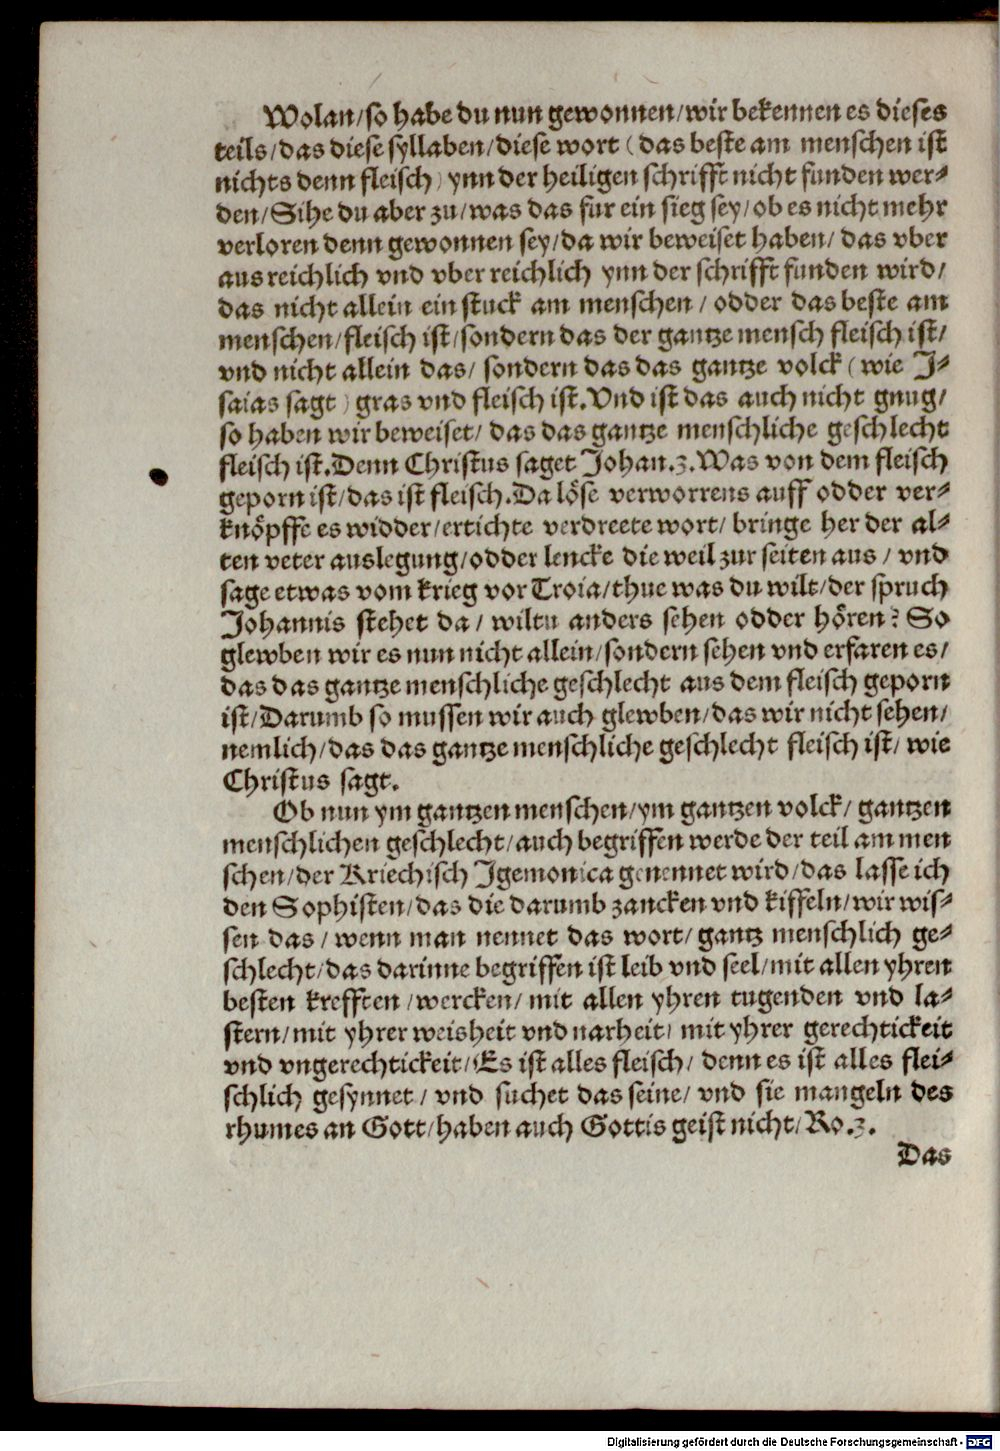 Wolan/so habe du nun gewonnen/wir bekennen es dieses
teils/das diese syllaben/diese wort (das beste am menschen ist
nichts denn fleisch) ynn der heiligen schrifft nicht funden wer-
den/Sihe du aber zu/was das fur ein sieg sey/ob es nicht mehr
verloren denn gewonnen sey/da wir beweiset haben/das vber
aus reichlich vnd vber reichlich ynn der schrifft funden wird/
das nicht allein ein stuck am menschen/odder das beste am
menschen/fleisch ist/sondern das der gantze mensch fleisch ist/
vnd nicht allein das/sondern das das gantze volck (wie J-
saias sagt) gras vnd fleisch ist.Vnd ist das auch nicht gnug/
so haben wir beweiset/das das gantze menschliche geschlecht
fleisch ist.Denn Christus saget Johan.3.Was von dem fleisch
geporn ist/das ist fleisch.Da löse verworrens auff odder ver-
knöpffe es widder/ertichte verdreete wort/bringe her der al-
ten veter auslegung/odder lencke die weil zur seiten aus/vnd
sage etwas vom krieg vor Troia/thue was du wilt/der spruch
Johannis stehet da/wiltu anders sehen odder hören? So
glewben wir es nun nicht allein/sondern sehen vnd erfaren es/
das das gantze menschliche geschlecht aus dem fleisch geporn
ist/Darumb so mussen wir auch glewben/das wir nicht sehen/
nemlich/das das gantze menschliche geschlecht fleisch ist/wie
Christus sagt.
Ob nun ym gantzen menschen/ym gantzen volck/gantzen
menschlichen geschlecht/auch begriffen werde der teil am men
schen/der Kriechisch Jgemonica genennet wird/das lasse ich
den Sophisten/das die darumb zancken vnd kiffeln/wir wis-
sen das/wenn man nennet das wort/gantz menschlich ge-
schlecht/das darinne begriffen ist leib vnd seel/mit allen yhren
besten krefften/wercken/mit allen yhren tugenden vnd la-
stern/mit yhrer weisheit vnd narheit/mit yhrer gerechtickeit
vnd vngerechtickeit/Es ist alles fleisch/denn es ist alles flei-
schlich gesynnet/vnd suchet das seine/vnd sie mangeln des
rhumes an Gott/haben auch Gottis geist nicht/Ro.3.
Das
Digitalisierung gefördert durch die Deutsche Forschungsgemeinschaft - DFG